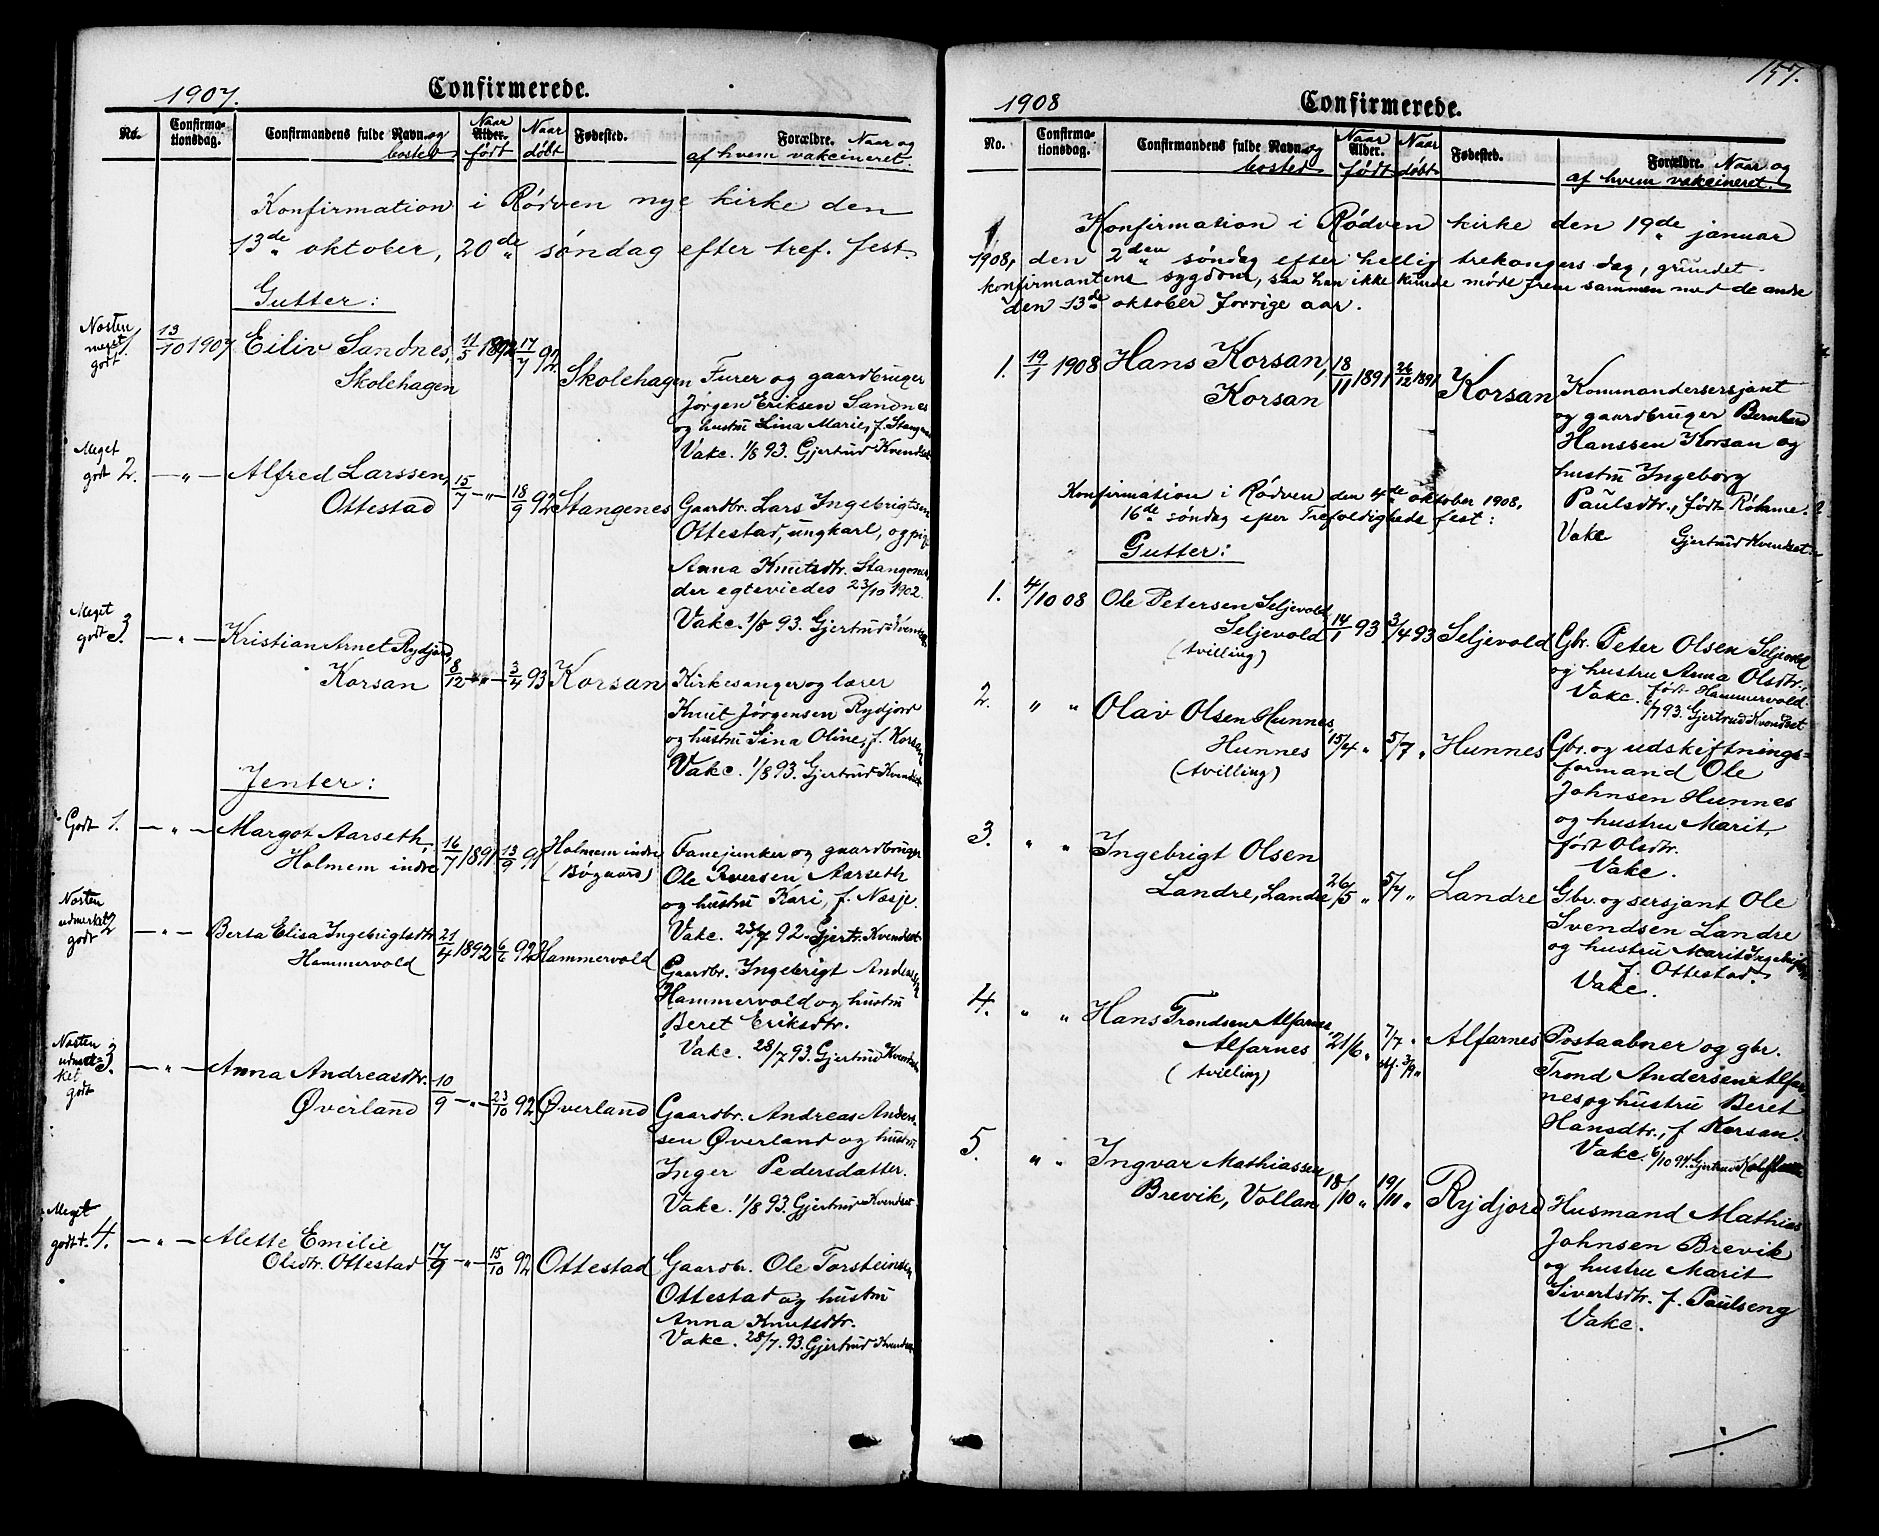 1907.
Confirmerede.
No.
Confirma-
tionsdag.
Confirmandens fulde Navn og
bosted
Naar
Alder.
født
Naar
døbt
Fødested.
Forældre. Naar og
af hvem vakcineret.
Konfirmation i Rødven nye kirke den
13de oktober, 20de søndag efter tref. fest.
Gutter:
Næsten
meget
godt
1.
13/10 1907
Eiliv Sandnes,
Skolehagen
11/5 1892
17/7 92
Skolehagen
Furer og gaardbruger
Jørgen Eriksen Sandnes
og hustru Lina Marie, f. Stangenes
Vakc. 1/8 93. Gjertrud Kvendset
Meget
godt
2.
— " —
Alfred Larssen
Ottestad
15/7 — " —
18/9 92
Stangenes
Gaardbr. Lars Ingebrigtsen
Ottestad, ungkarl, og pige
Anna Knutsdtr. Stangenes,
der egteviedes 23/10 1902.
Vakc. 1/8 93. Gjertrud Kvendset
Meget
godt
3.
— " —
Kristian Arnet Rydjord,
Korsan
8/12 — " —
3/4 93
Korsan
Kirkesanger og lærer
Knut Jørgensen Rydjord
og hustru Sina Oline, f. Korsan
Vakc. 1/8 93. Gjertrud Kvendset
Jenter:
Godt
1.
— " —
Margot Aarseth,
Holmem indre
16/7 1891
13/9 91
Holmem indre
(Bøgaard)
Fanejunker og gaardbruger
Ole Iversen Aarseth
og hustru Kari, f. Nesje.
Vakc. 28/7 92. Gjertr. Kvendset
Næsten
udmerket
godt
2
— " —
Berta Elisa Ingebrigtsdtr.
Hammervold
21/4 1892
6/6 92
Hammervold
Gaardbr. Ingebrigt Anderssen
Hammervold og hustru
Beret Eriksdtr.
Vakc. 28/7 93. Gjertrud Kvendset
Næsten
udmer-
ket
godt
3.
— " —
Anna Andreasdtr.
Øverland
10/9 — " —
23/10 92
Øverland
Gaardbr. Andreas Ander-
sen Øverland og hustru
Inger Pedersdatter.
Vakc. 1/8 93. Gjertrud Kvendset
Meget
godt.
4.
— " —
Alette Emilie
Olsdtr. Ottestad
17/9 — " —
15/10 92
Ottestad
Gaardbr. Ole Torsteinsen
Ottestad og hustru
Anna Knutsdtr.
Vakc. 28/7. 93. Gjertrud Kvendset
157.
1908
Confirmerede.
No.
Confirma-
tionsdag.
Confirmandens fulde Navn og
bosted
Naar
Alder.
født
Naar
døbt
Fødested.
Forældre. Naar og
af hvem vakcineret.
Konfirmation i Rødven kirke den 19de januar
1908, den 2den søndag efter hellig trekongers dag, grundet
konfirmantens sygdom, saa han ikke kunde møde frem sammen med de andre
den 13de oktober forrige aar.
1.
19/1 1908
Hans Korsan,
Korsan
18/11 1891
26/12 1891
Korsan
Kommandersersjant
og gaardbruger Bernhard
Hanssen Korsan og
hustru Ingeborg
Paulsdtr., født
Vakc Gjertrud Kvendset
Konfirmation i Rødven den 4de oktober 1908,
16de søndag efter Trefoldigheds fest:
Gutter:
1.
4/10 08
Ole Petersen Seljevold
Seljevold
(tvilling)
14/1 93
3/4 93
Seljevold
Gbr. Peter Olsen Seljevold
og hustru Anna Olsdtr.,
født Hammervold.
Vakc. 6/7 93. Gjertrud Kvendset
2.
" "
Olav Olsen Hunnes,
Hunnes
(tvilling)
15/4 "
5/7 "
Hunnes
Gbr. og udskiftnings-
formand Ole
Johnsen Hunnes
og hustru Marit,
født Olsdtr.
Vakc.
3.
" "
Ingebrigt Olsen
Landre, Landre
26/5 "
5/7 "
Landre
Gbr. og sersjant Ole
Svendsen Landre
og hustru Marit Ingebrigtsdtr.
f. Ottestad.
Vakc.
4.
" "
Hans Trondsen Alfarnes,
Alfarnes
(tvilling)
21/6 "
7/7 "
3/9 "
Alfarnes
Postaabner og gbr.
Trond Andersen Alfar-
nes og hustru Beret
Hansdtr., f Korsan.
Vakc. 6/10 94. Gjertrud
5.
" "
Ingvar Mathiassen
Brevik, Vollan
18/10 "
19/11 "
Rydjord
Husmand Mathias
Johnsen Brevik
og hustru Marit
Sivertsdtr. f. Paulseng
Vakc.